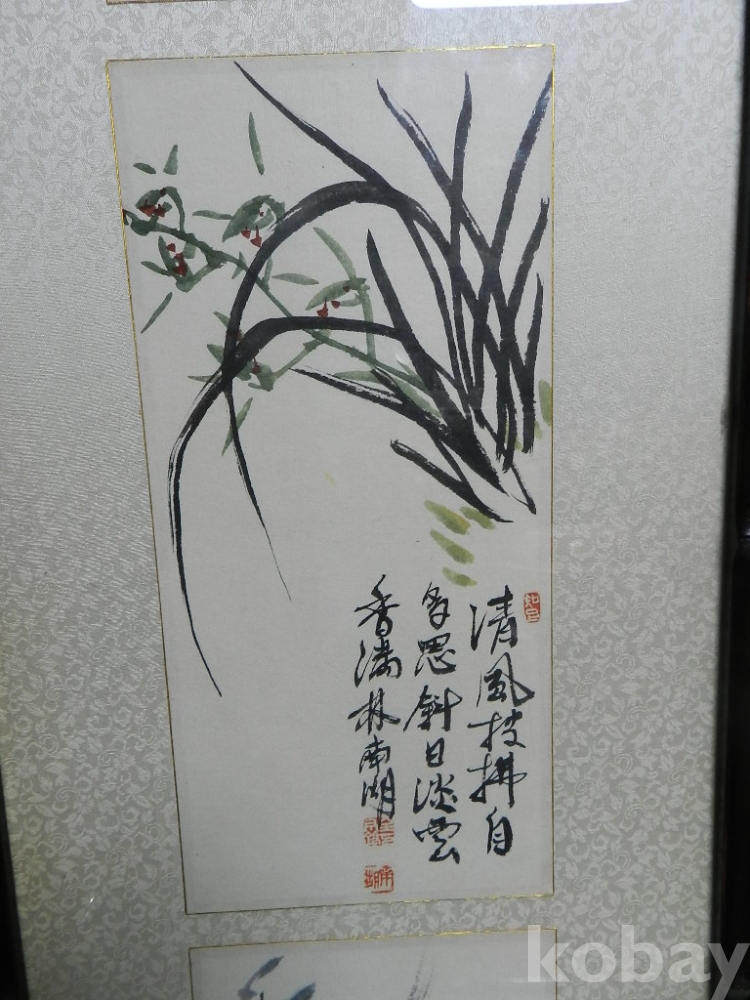 清風披拂自
多思斜日淡雲
香滿林南湖
南湖
kobay